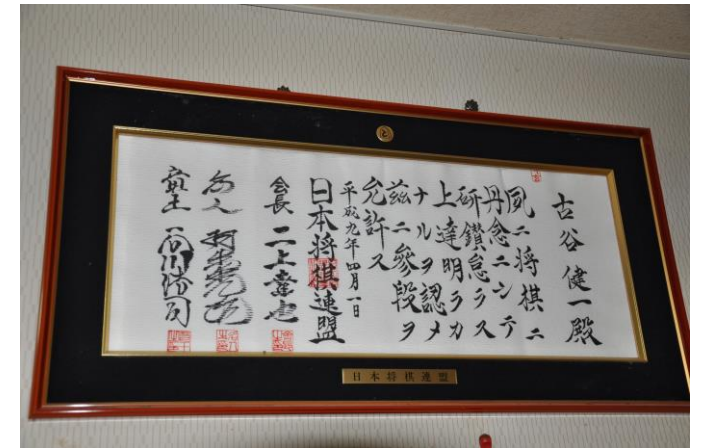 と
古谷健一殿
夙ニ将棋ニ
丹念ニシテ
研鑽怠ラス
上達明ラカ
ナルヲ認メ
茲ニ参段ヲ
允許ス
平成九年四月一日
日本将棋連盟
会長 二上達也
名人 羽生善治
竜王 谷川浩司
日本将棋連盟